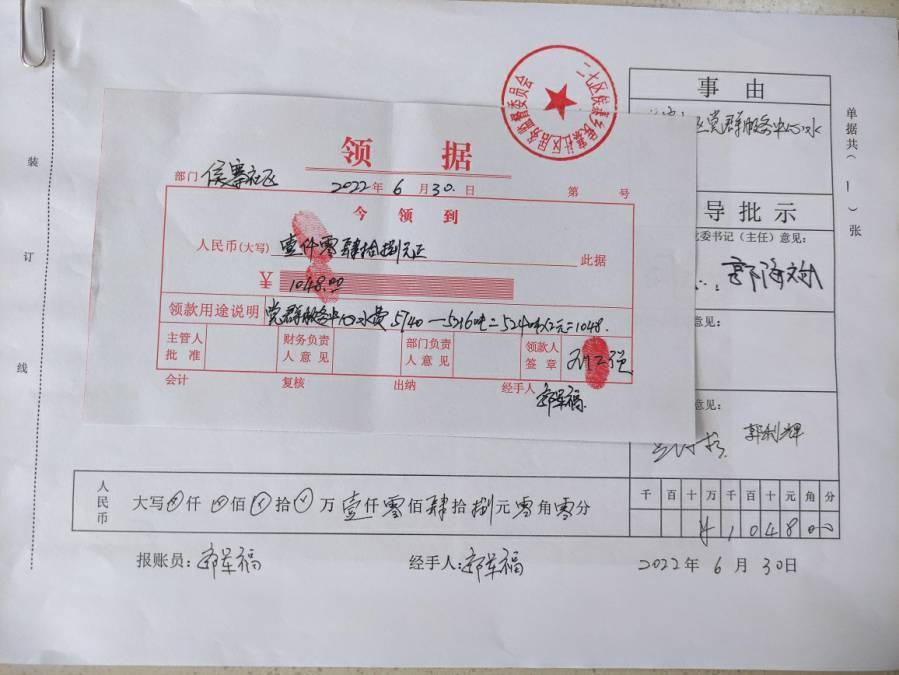 装订线
二七区侯寨乡侯寨社区居务监督委员会
领据
部门 侯寨社区 2022年6月30日 第 号
今领到
人民币(大写) 壹仟零肆拾捌元正 此据
¥ 1048.00
领款用途说明 党群服务中心水费 5740—5216吨=524吨×2元=1048.
主管人批准 财务负责人意见 部门负责人意见 领款人签章
会计 复核 出纳 经手人 郭军福
事由
区党群服务中心水
导批示
党委书记(主任)意见:
意见:
意见:
郭利辉
单据共(1)张
千百十万千百十元角分
¥104800
人民币 大写 仟 佰 拾 万 壹仟零佰肆拾捌元零角零分
报账员: 郭军福 经手人: 郭军福 2022年6月30日